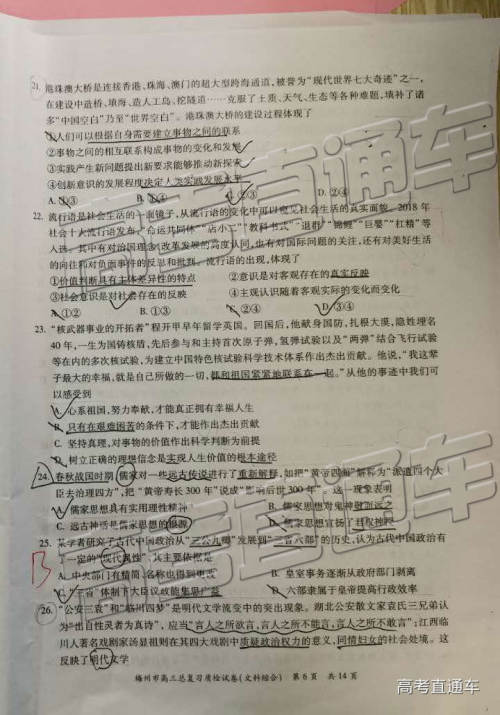 21. 港珠澳大桥是连接香港、珠海、澳门的超大型跨海通道，被誉为“现代世界七大奇迹”之一，
在建设中造桥、填海、造人工岛、挖隧道……克服了土质、天气、生态等各种难题，填补了诸
多“中国空白”乃至“世界空白”。港珠澳大桥的建设过程体现了
①人们可以根据自身需要建立事物之间的联系
②事物之间的相互联系构成事物的变化和发展
③实践产生新问题提出新要求能够推动新探索
④创新意识的发展程度决定人类实践发展水平
A. ①③ D. ②④
22. 流行语是社会生活的一面镜子，从流行语的变化中可以窥见社会生活的真实面貌。2018年
社会十大流行语发布，“命运共同体”“店小二”“教科书式”“退群”“锦鲤”“巨婴”“杠精”等
入选。其中有对治国理念、改革发展的高度认同，也有对国际问题的关注，还有对美好生活
的向往和对负面事件的反思和批判。流行语的出现，体现了
①价值判断具有主体差异性的特点 ②意识是对客观存在的真实反映
③社会意识是对社会存在的反映 ④主观认识随着客观实际的变化而变化
A. ①② B. ①③ D. ③④
23. “核武器事业的开拓者”程开甲早年留学英国。回国后，他献身国防，扎根大漠，隐姓埋名
40年，一生为国铸核盾，先后参与和主持首次原子弹，氢弹试验以及“两弹”结合飞行试验
等在内的多次核试验，为建立中国特色核试验科学技术体系作出杰出贡献。他说，“我这辈
子最大的幸福，就是自己所做的一切，都和祖国紧紧地联系在一起。”从他的事迹中我们可
以感受到
A. 心系祖国，努力奉献，才能真正拥有幸福人生
B. 只有在艰难困苦的条件下，才能作出杰出贡献
C. 坚持真理，对事物的价值作出科学判断为前提
D. 树立正确的理想信念是实现人生价值的根本途径
24. 春秋战国时期，儒家对一些远古传说进行了重新解释，如把“黄帝四面”解释为“派遣四个大
臣去治理四方”，把“黄帝寿长300年”说成“影响后世300年”。这一现象表明
A. 儒家思想具有实用理性精神 B. 儒家思想对鬼神敬而远之
C. 远古神话是儒家思想的根源 D. 儒家思想宣扬了君权神授
25. 某学者研究了古代中国政治从“三公九卿”发展到“三省六部”的历史，认为古代中国政治有
了一定的“现代属性”，其主要依据是
A. 中央部门有精简，名称也得到更改 B. 皇室事务逐渐从政府部门剥离
C. “三省”体制下大臣议政能集思广益 D. 六部隶属于皇帝提高行政效率
B
26. “公安三袁”和“临川四梦”是明代文学流变中的突出现象。湖北公安散文家袁氏三兄弟认
为“出自性灵者为真诗”，应当“言人之所欲言，言人之所不能言，言人之所不敢言”；江西临
川人著名戏剧家汤显祖则在其四大戏剧中质疑政治权力的意义，同情妇女的社会处境。这
反映了明代文学
梅州市高三总复习质检试卷(文科综合) 第6页 共14页
高考直通车
高考直通车
高考直通车